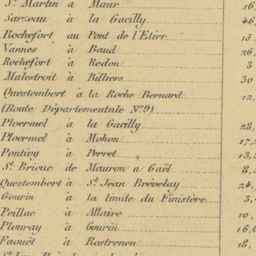 St. Martin à Maur 16,
Sarzeau à la Gacilly 46,
Rochefort au Pont de l'Etier 15,
Vannes à Baud 26,
Rochefort à Redon 3
Malestroit à Billiers 30
Questembert à la Roche Bernard 12,
(Route Départementale No. 9)
Ploermel à la Gacilly 28,
Ploermel à Mohon 17,
Pontivy à Perret 13,5
St. Brieuc de Mauron à Gaël 8,
Questembert à St. Jean Brévelay 24,
Gourin à la limite du Finistère 3,
Peillac à Allaire 10,
Plouray à Gourin 16,0
Faouët à Rostrenen 18,